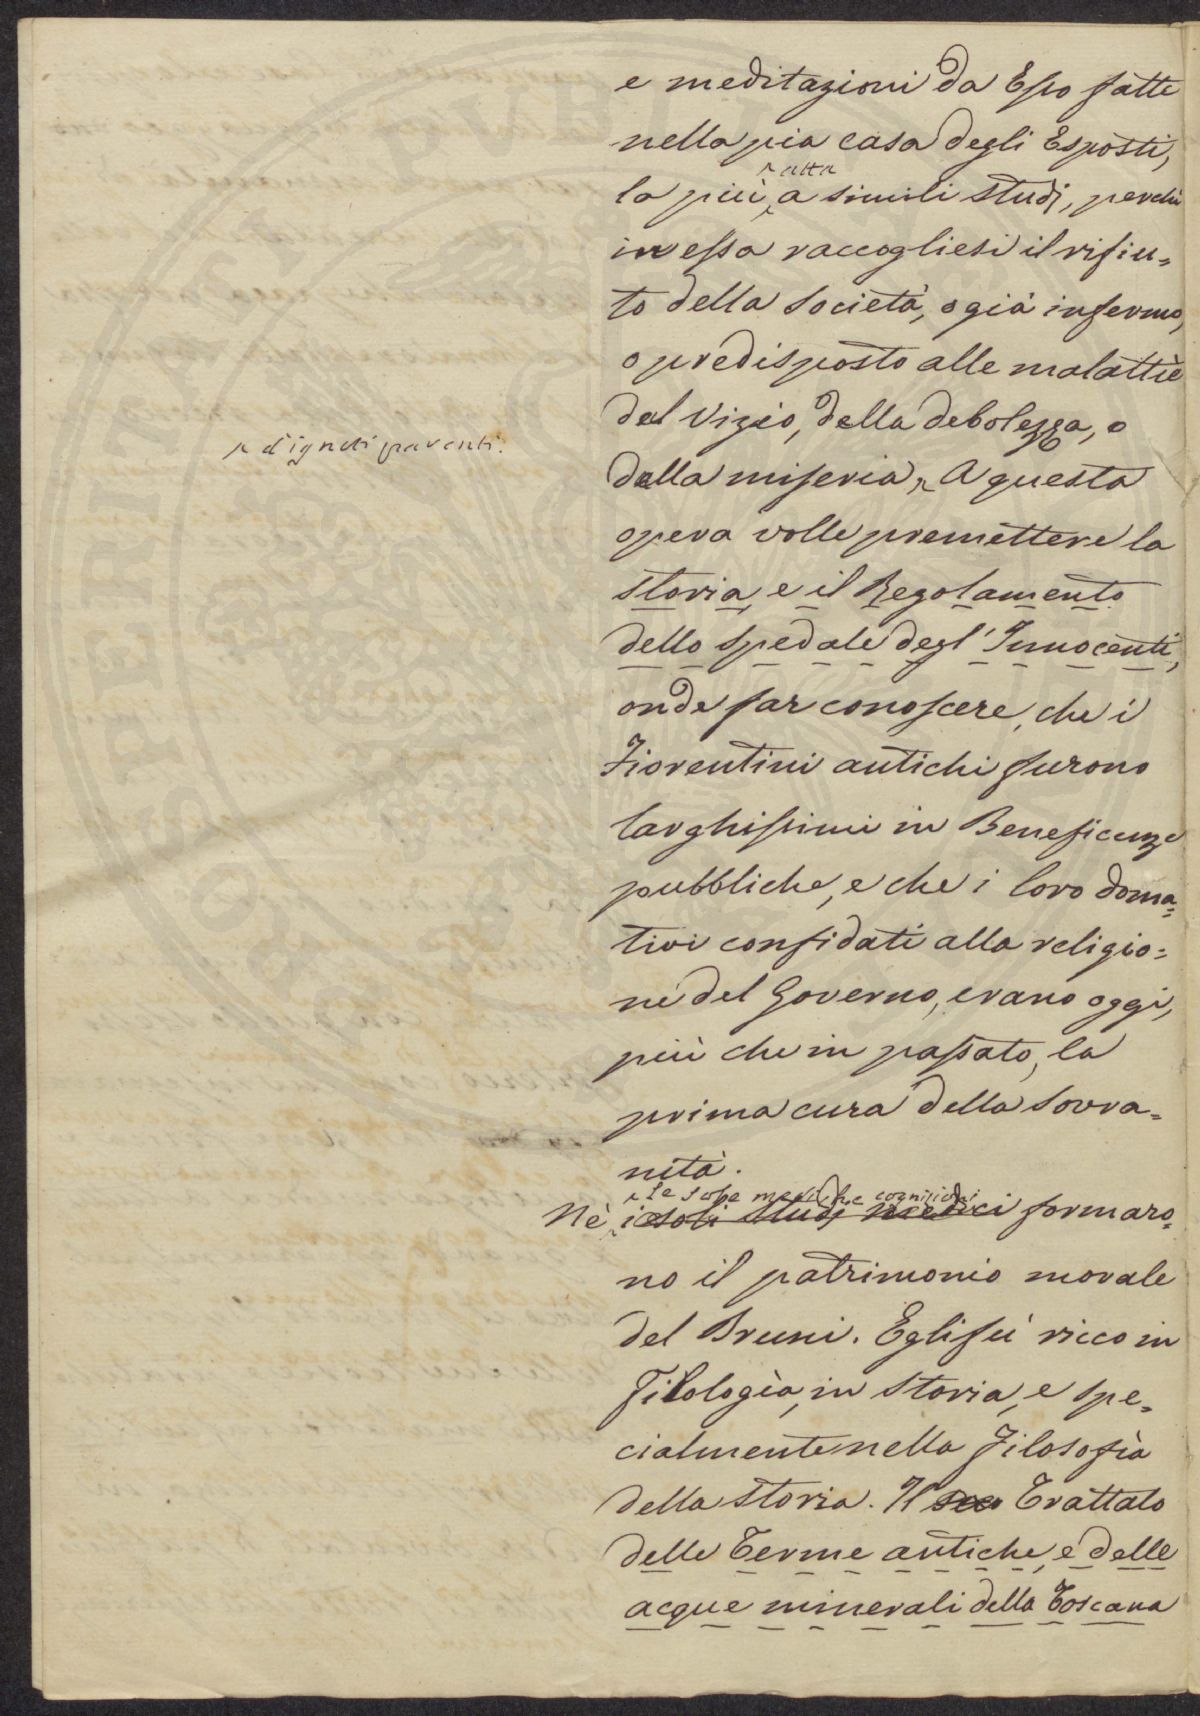 e meditazioni da Esso fatte
nella pia casa degli Esposti,
atta
la più a simili studj, perchè
in essa raccogliesi il rifiu=
to della Società, o già infermo,
o predisposto alle malattie
del Vizio, della debolezza, o
d'ignoti parenti.
della miseria, A questa
opera volle premettere la
Storia, e il Regolamento
dello Spedale degl'Innocenti,
onde far conoscere, che i
Fiorentini antichi furono
larghissimi in Beneficenze
pubbliche, e che i loro dona=
tivi confidati alla religio=
ne del Governo, erano oggi,
più che in passato, la
prima cura della Sovra=
nità.
le sole mediche cognizioni
Nè i soli studj medici formaro=
no il patrimonio morale
del Bruni. Egli fù ricco in
Filologia, in Storia, e spe=
cialmente nella Filosofia
della Storia. Il suo Trattato
delle Terme antiche, e delle
acque minerali della Toscana